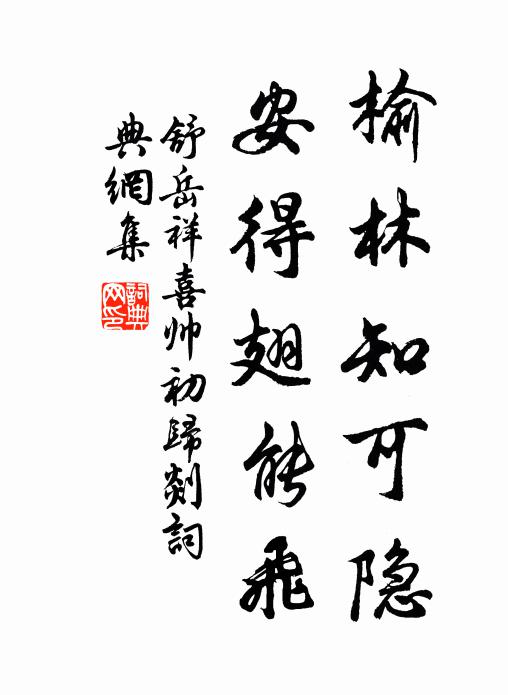 榆林知可隐
安得翅能飛
舒岳祥喜帅初歸剡詞
典網集
詞典网印